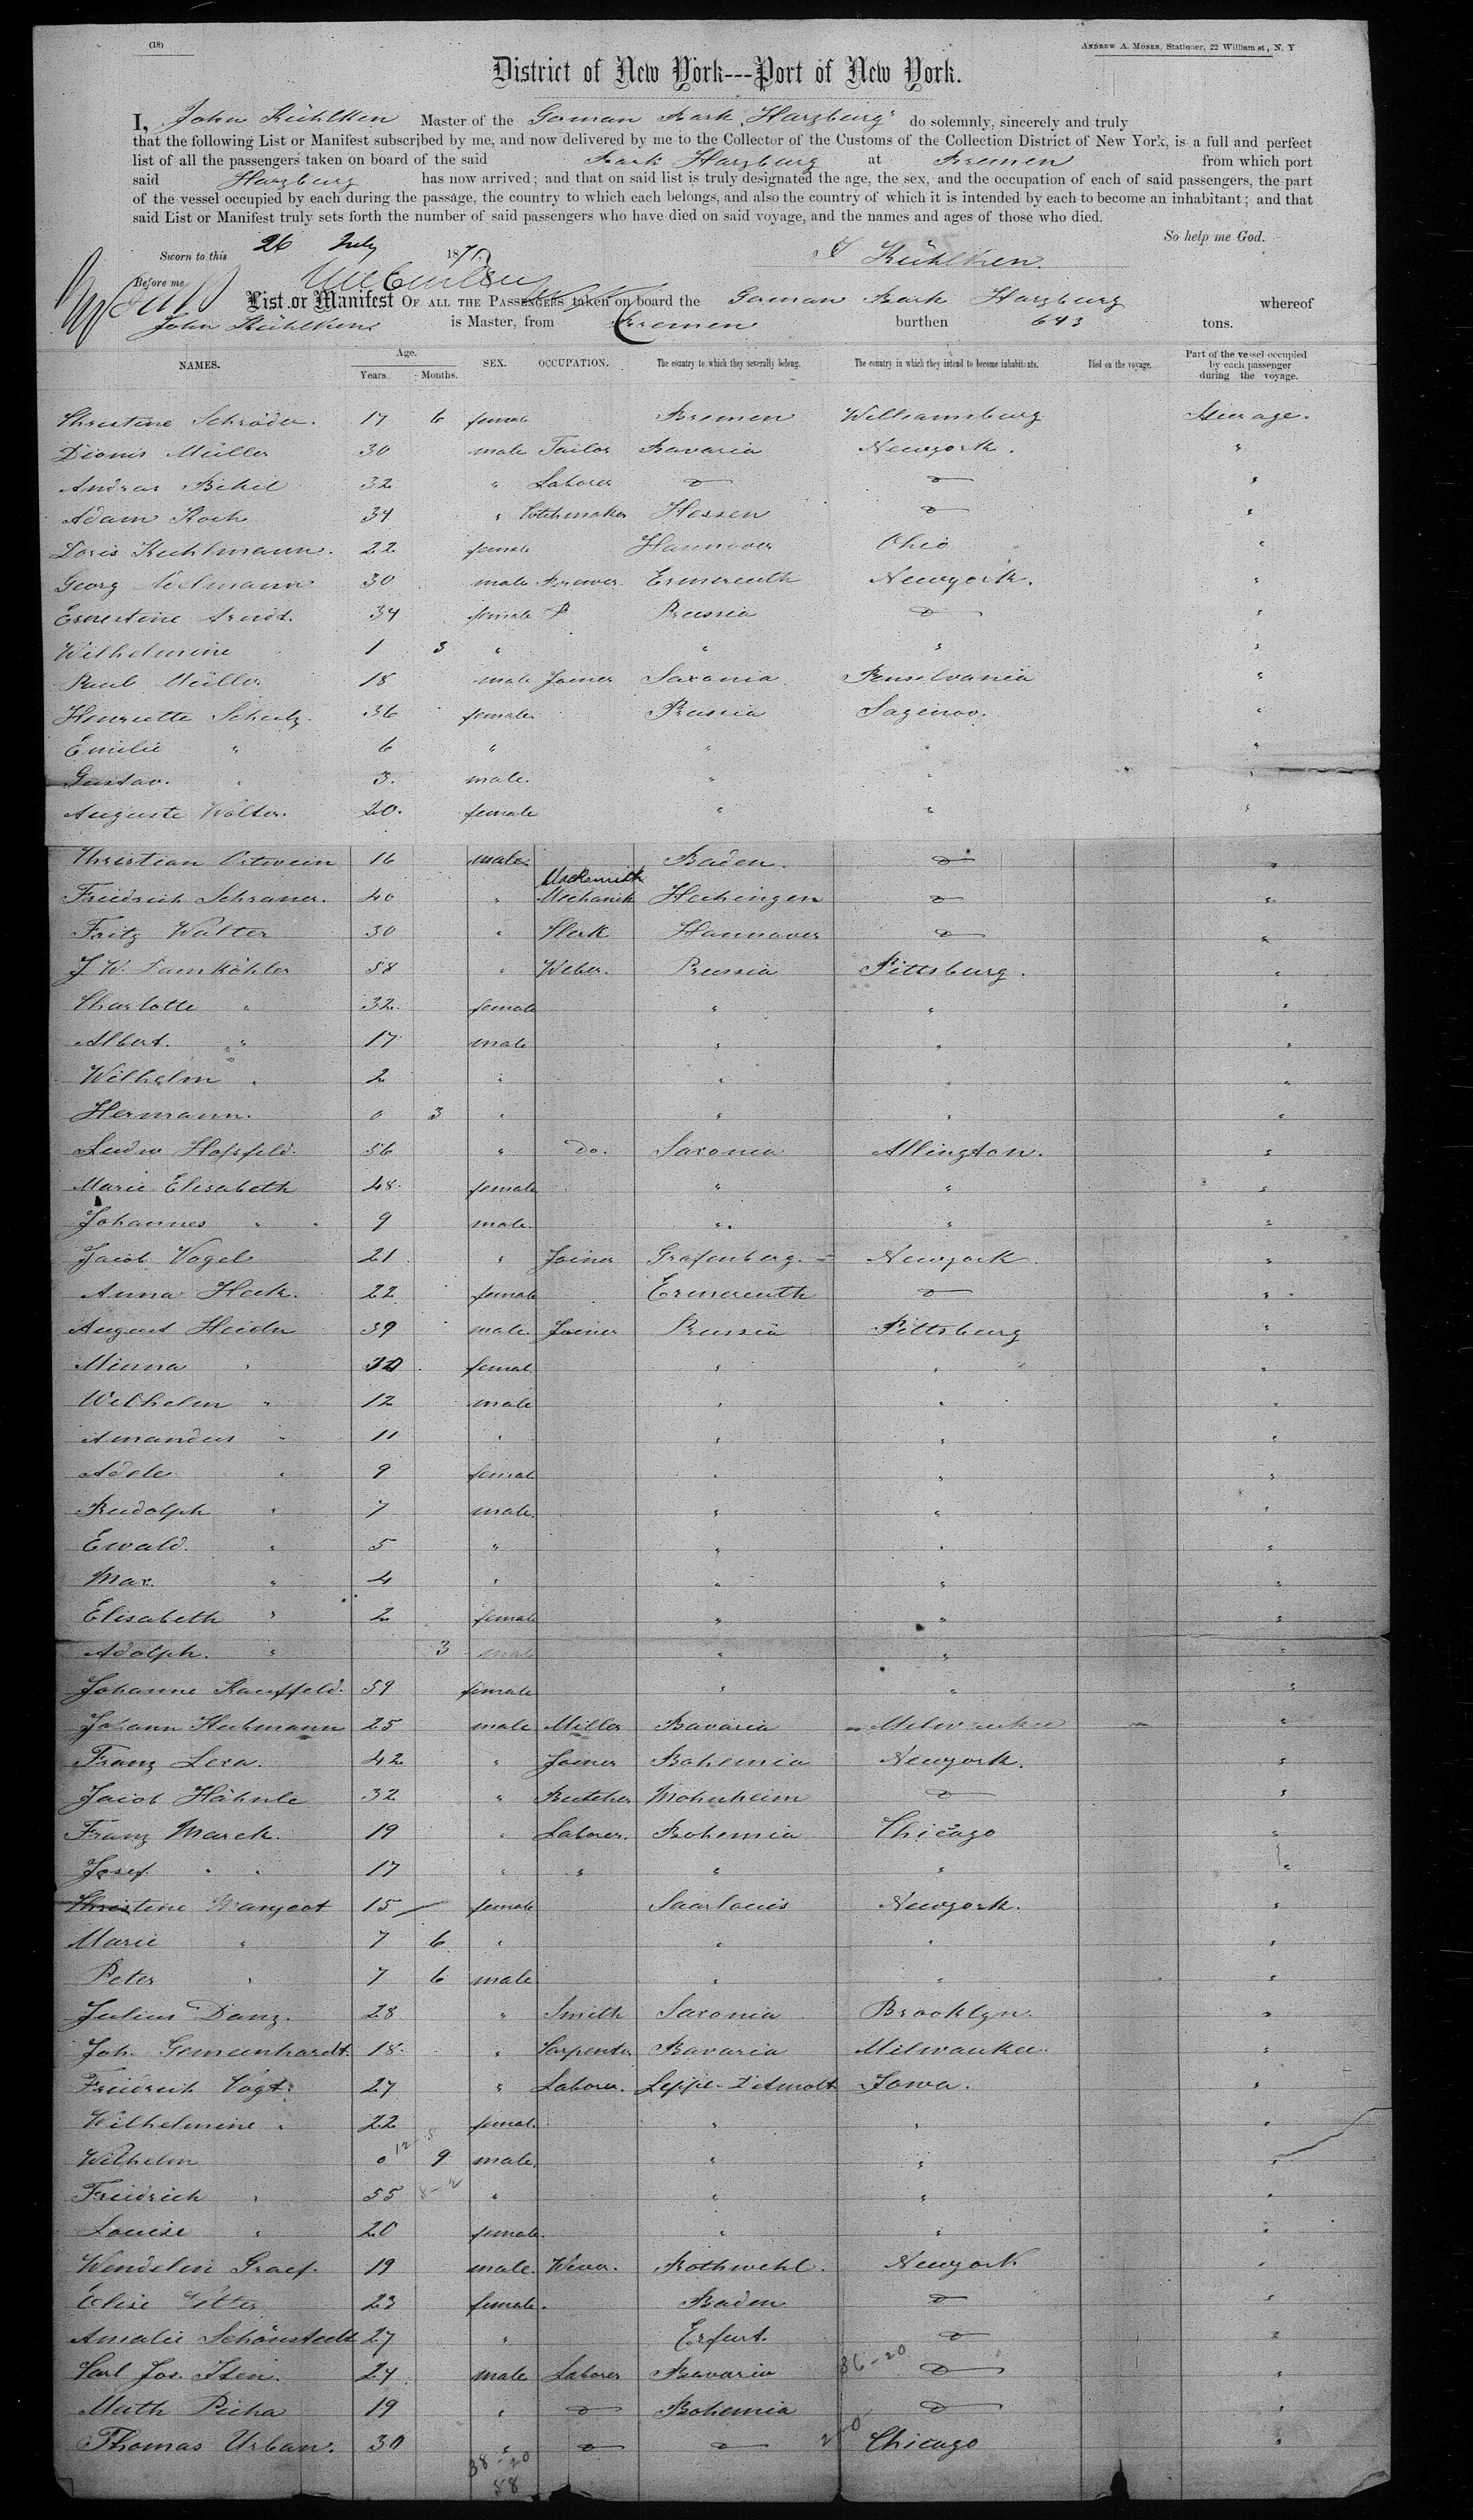 (18)
ANDREW A. MOSER, Stationer, 22 William st, N. Y
District of New York---Port of New York.
I, John Kühlken Master of the German Bark "Harzburg" do solemnly, sincerely and truly
that the following List or Manifest subscribed by me, and now delivered by me to the Collector of the Customs of the Collection District of New York, is a full and perfect
list of all the passengers taken on board of the said Bark Harzburg at Bremen from which port
said Harzburg has now arrived; and that on said list is truly designated the age, the sex, and the occupation of each of said passengers, the part
of the vessel occupied by each during the passage, the country to which each belongs, and also the country of which it is intended by each to become an inhabitant; and that
said List or Manifest truly sets forth the number of said passengers who have died on said voyage, and the names and ages of those who died.
So help me God.
Sworn to this 26 July 187
J Kühlken.
Before me
List or Manifest OF ALL THE PASSENGERS taken on board the German Bark Harzburg whereof
John Kühlken is Master, from Bremen burthen 643 tons.
NAMES. Age. Years. Months. SEX. OCCUPATION. The country to which they severally belong. The country in which they intend to become inhabitants. Died on the voyage. Part of the vessel occupied by each passenger during the voyage.
Christine Schröder. 17 6 female Bremen Williamsburg Steerage.
Dionis Müller 30 male Tailor Bavaria Newyork. "
Andreas Bikel 32 " Laborer do do "
Adam Koch 34 " Hessen do "
Doris Kuhlmann. 22 female Hannover Ohio "
Georg 30 male Brewer Ermreuth Newyork. "
Ernestine Arndt. 34 female Prussia do "
Wilhelmine 1 3 " " " "
Paul Müller 18 male Joiner Saxonia Pensilvania "
Henriette Schulz. 36 female Prussia Saginoo. "
Emilie " 6 " " " "
Gustav. " 3. male. " " "
Auguste Wolter. 20. female " " "
Christian Ortwein 16 male. Baden. do "
Friedrich Schraner. 40 " Mechanik Hechingen do "
Fritz Walter 30 " Clerk Hannover do "
J. W. Tamköhler 58 " Weber. Prussia Pittsburg. "
Charlotte " 32. female " " "
Albert. " 17 male " " "
Wilhelm " 2 " " " "
Hermann. 0 3 " " " "
Ludw Hossfeld. 56 " do. Saxonia Allington. "
Marie Elisabeth 48. female " " "
Johannes " " 9 male. " " "
Jacob Vogel 21. " Joiner Grafenberg. Newyork. "
Anna Heck. 22 female Ermreuth do "
August Heider 39 male. Joiner Prussia Pittsburg "
Minna " 30 femal. " " "
Wilhelm " 12 male " " "
Amandus " 11 " " " "
Adele " 9 femal " " "
Rudolph " 7 male. " " "
Ewald. " 5 " " " "
Max. " 4 " " " "
Elisabeth " 2 female " " "
Adolph. " 3 male " " "
Johanne Kauffeld. 59 female " " "
Johann Hubmann 25 male Miller Bavaria Milwaukee "
Franz Lexa. 42 " Joiner Bohemia Newyork. "
Jacob Hähnle 32 " Butcher Mohnheim do "
Franz Marek. 19 " Laborer. Bohemia Chicago "
Josef " " 17 " " " " "
Christine 15 female Saarlouis Newyork. "
Marie " 7 6 " " " "
Peter " 7 6 male " " "
Julius Danz. 28 " Smith Saxonia Brooklyn. "
Joh. Gemeinhardt. 18. " Carpenter Bavaria Milwaukee. "
Friedrich Vogt. 27 " Laborer. Lippe-Detmolt Iowa. "
Wilhelmine " 22 femal. " " "
Wilhelm 0 9 male. " " "
Friedrich " 55 " " " "
Louise " 20 female. " " "
Wendelin Graef. 19 male. Wever. Rothwehl. Newyork "
Elise Vetter 23 female. Baden do "
Amalie Schönstedt 27 " Erfurt. do "
Carl Jos. Iten. 24 male Laborer Bavaria do "
36-20
Math Picha 19 " do Bohemia do "
Thomas Urban. 30 " do do Chicago "
38-20
58